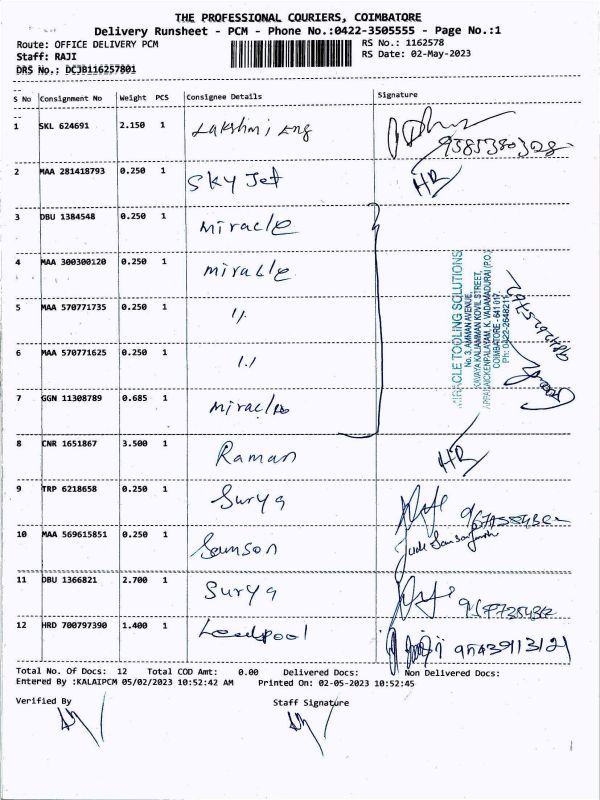 THE PROFESSIONAL COURIERS, COIMBATORE
Delivery Runsheet - PCM - Phone No.:0422-3505555 - Page No.:1
Route: OFFICE DELIVERY PCM
RS No.: 1162578
Staff: RAJI
RS Date: 02-May-2023
DRS No.: DCJB116257801
S No Consignment No Weight PCS Consignee Details Signature
1 SKL 624691 2.150 1 Lakshmi Eng 9385380308
2 MAA 281418793 0.250 1 SKY Jet HR
3 DBU 1384548 0.250 1 miracle
4 MAA 300300120 0.250 1 miracle
5 MAA 570771735 0.250 1 11
6 MAA 570771625 0.250 1 11
7 GGN 11308789 0.685 1 miracle
MIRACLE TOOLING SOLUTIONS
No. 3, AMMAN AVENUE,
KOVAYA KALIAMMAN KOVIL STREET,
APPANAICKENPALAYAM, K. VADAMADURAI (P.O.)
COIMBATORE - 641 017.
Ph: 0422-2648211
8 CNR 1651867 3.500 1 Raman HR
9 TRP 6218658 0.250 1 Surya
10 MAA 569615851 0.250 1 Samson
11 DBU 1366821 2.700 1 Surya
12 HRD 700797390 1.400 1 Leedpool 9543911312
Total No. Of Docs: 12 Total COD Amt: 0.00 Delivered Docs: Non Delivered Docs:
Entered By :KALAIPCM 05/02/2023 10:52:42 AM Printed On: 02-05-2023 10:52:45
Verified By Staff Signature